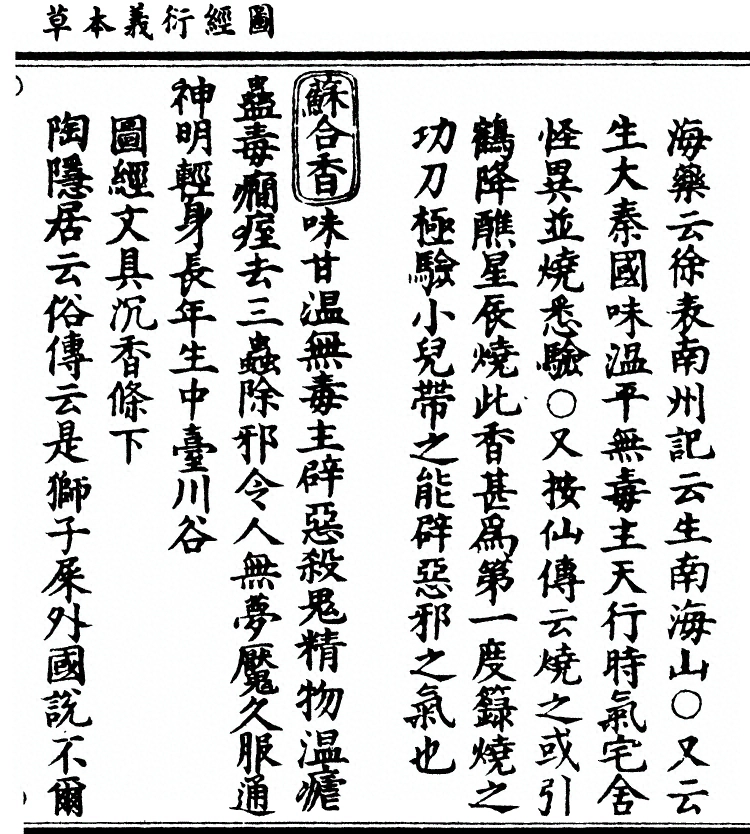 圖經衍義本草
海藥云徐表南州記云生南海山○又云
生大秦國味溫平無毒主天行時氣宅舍
怪異並燒悉驗○又按仙傳云燒之或引
鶴降醮星辰燒此香甚爲第一度籙燒之
功刀極驗小兒帶之能辟惡邪之氣也
蘇合香味甘温無毒主辟惡殺鬼精物温瘧
蠱毒癇痓去三蟲除邪令人無夢魘久服通
神明輕身長年生中臺川谷
圖經文具沉香條下
陶隱居云俗傳云是獅子屎外國說不爾